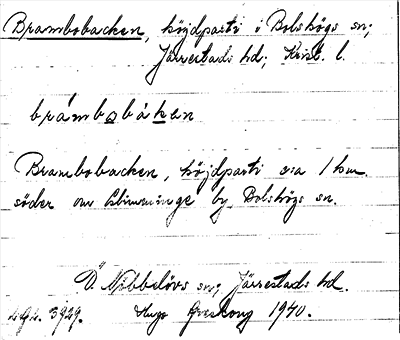 Brambobacken, höjdparti i Bolshögs sn;
Järrestads hd; Krist. l.
brámbobáken
Brambobacken, höjdparti c:a 1 km
söder om Glimminge by, Bolshögs sn.
Ö. Nöbbelövs sn; Järrestads hd.
3929. Hugo Areskoug 1940.